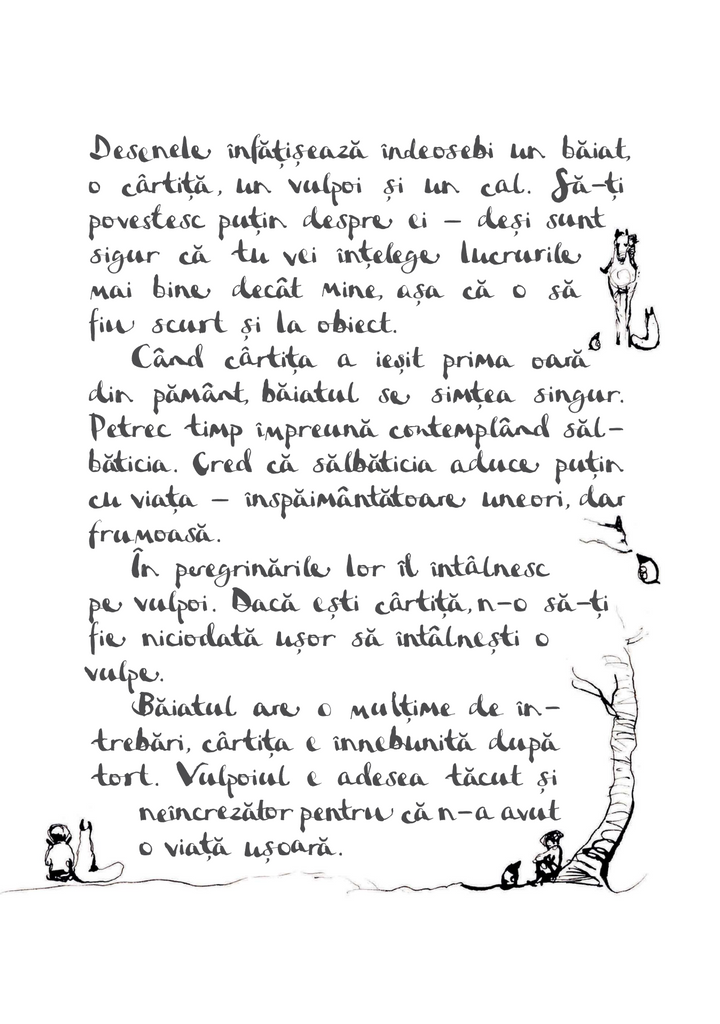 Desenele înfățișează îndeosebi un băiat,
o cârtiță, un vulpoi și un cal. Să-ți
povestesc puțin despre ei – deși sunt
sigur că tu vei înțelege lucrurile
mai bine decât mine, așa că o să
fiu scurt și la obiect.
Când cârtița a ieșit prima oară
din pământ, băiatul se simțea singur.
Petrec timp împreună contemplând săl-
băticia. Cred că sălbăticia aduce puțin
cu viața – înspăimântătoare uneori, dar
frumoasă.
În peregrinările lor îl întâlnesc
pe vulpoi. Dacă ești cârtiță, n-o să-ți
fie niciodată ușor să întâlnești o
vulpe.
Băiatul are o mulțime de în-
trebări, cârtița e înnebunită după
tort. Vulpoiul e adesea tăcut și
neîncrezător pentru că n-a avut
o viață ușoară.